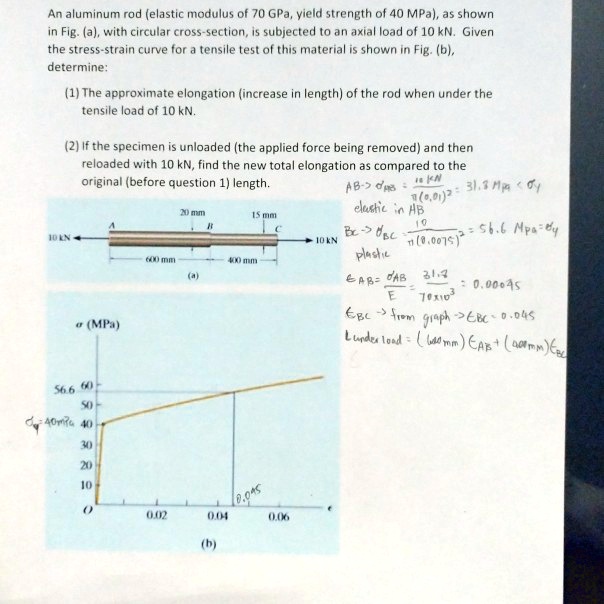 An aluminum rod (elastic modulus of 70 GPa, yield strength of 40 MPa), as shown
in Fig. (a), with circular cross-section, is subjected to an axial load of 10 kN. Given
the stress-strain curve for a tensile test of this material is shown in Fig. (b),
determine:
(1) The approximate elongation (increase in length) of the rod when under the
tensile load of 10 kN.
(2) If the specimen is unloaded (the applied force being removed) and then
reloaded with 10 kN, find the new total elongation as compared to the
original (before question 1) length.
AB-> σAB = 10 kN / π(0.01)² = 31.8 Mpa < σy
elastic in AB
BC -> σBC = 10 / π(0.0075)² = 56.6 Mpa = σy
plastic
ϵAB = σAB / E = 31.8 / 70x10³ = 0.00045
ϵBC -> from graph -> ϵBC = 0.045
L under load = (600mm) ϵAB + (400mm) ϵBC
20 mm
15 mm
A
B
C
10 kN
10 kN
600 mm
400 mm
(a)
σ (MPa)
56.6
60
50
σy=40mPa
40
30
20
10
0.045
0
0.02
0.04
0.06
ϵ
(b)